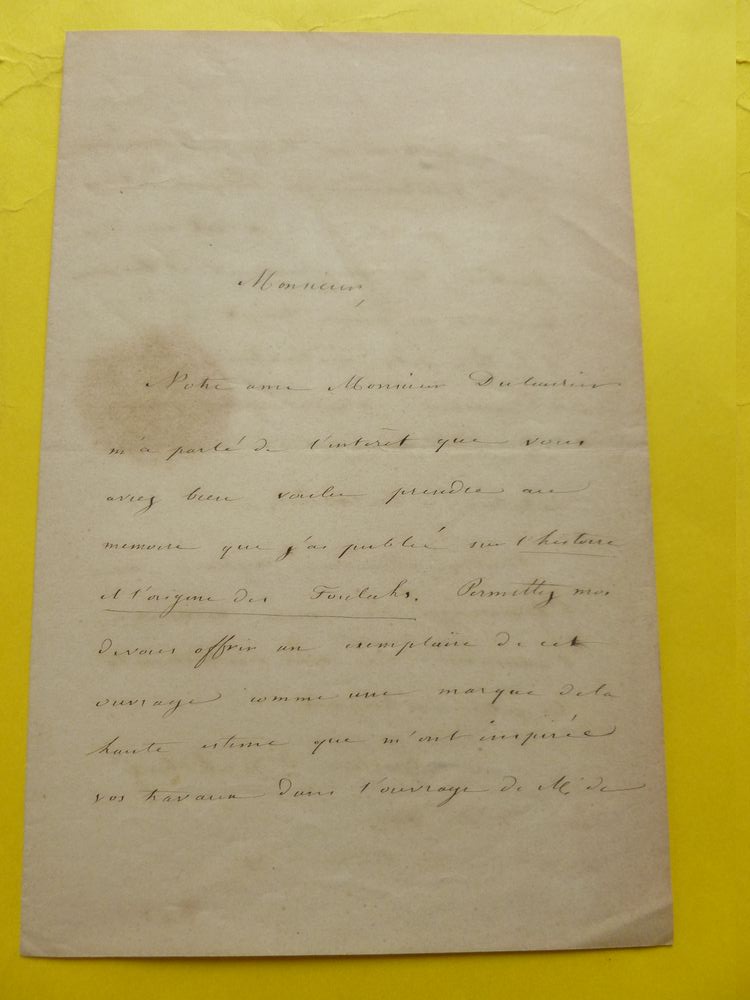 Monsieur,
Notre ami Monsieur Dulaurier
m'a parlé de l'intérêt que vous
aviez bien voulu prendre au
memoire que j'ai publié sur l'histoire
et l'origine des Foulahs. Permettez moi
de vous offrir un exemplaire de cet
ouvrage comme une marque de la
haute estime que m'ont inspirée
vos travaux dans l'ouvrage de M. de